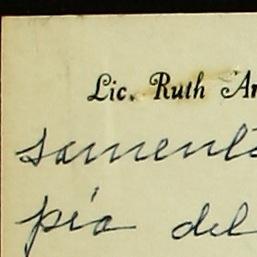 Lic. Ruth Ar
samente
pía del